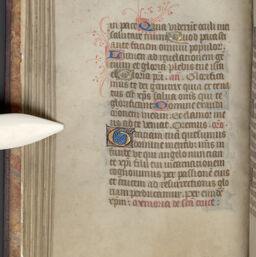 in pace Quia viderunt oculi mei
salutare tuum Quod parasti
ante faciem omnium populor
Lumen ad revelationem gen
cium et gloria plebis tue isra
el Gloria pri an Glorifica
mus te dei genitrix quia ex te na
tus est xps salva oms qui te
glorificant Domine exaudi
orationem meam Et clamor me
us ad te veniat Oremus oro
Gratiam tuam quesumus
domine mentibus nris in
funde ut qui angelo nunciante
xpi filii tui incarnationem
cognovimus per passionem eius
et crucem ad resurrectionis glo
riam perducamur per eunde
xpm memoria de sca cruce